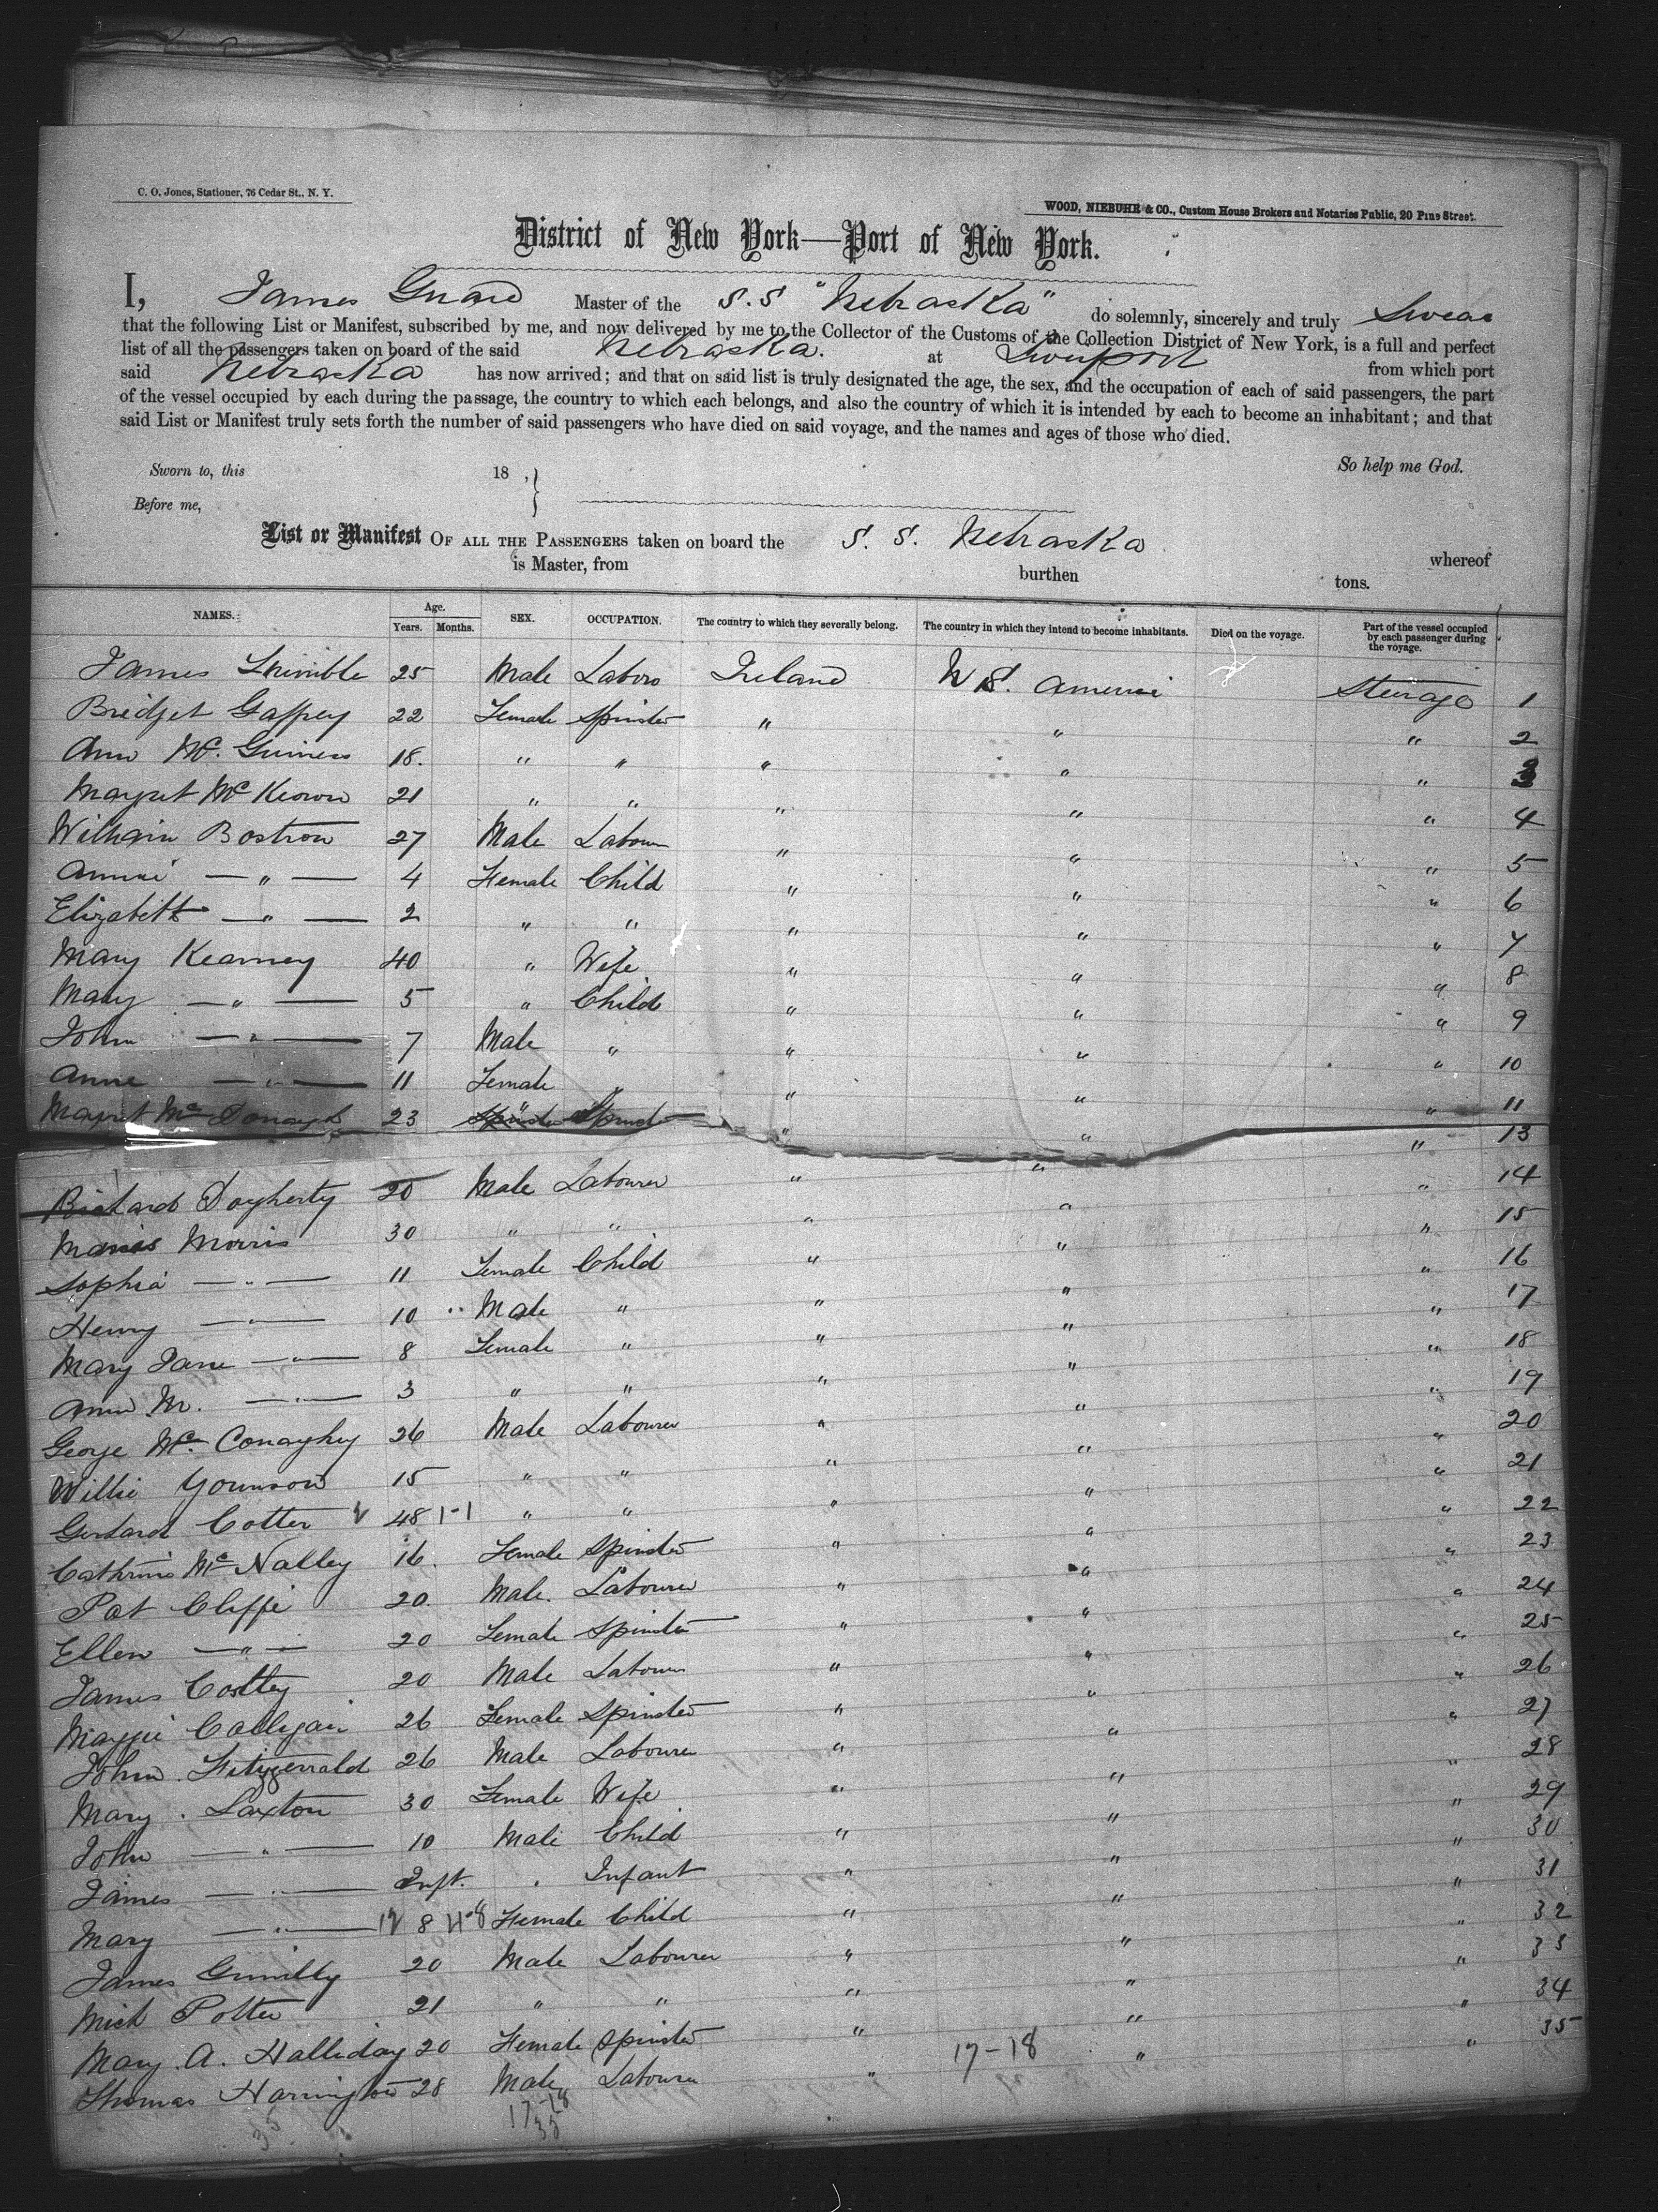 C. O. Jones, Stationer, 76 Cedar St., N. Y.
WOOD, NIEBUHR & CO., Custom House Brokers and Notaries Public, 20 Pine Street.
District of New York—Port of New York.
I, James Guard Master of the S.S "Nebraska" do solemnly, sincerely and truly Swear
that the following List or Manifest, subscribed by me, and now delivered by me to the Collector of the Customs of the Collection District of New York, is a full and perfect
list of all the passengers taken on board of the said Nebraska. at Liverpool from which port
said Nebraska has now arrived; and that on said list is truly designated the age, the sex, and the occupation of each of said passengers, the part
of the vessel occupied by each during the passage, the country to which each belongs, and also the country of which it is intended by each to become an inhabitant; and that
said List or Manifest truly sets forth the number of said passengers who have died on said voyage, and the names and ages of those who died.
Sworn to, this 18 , So help me God.
Before me,
List or Manifest OF ALL THE PASSENGERS taken on board the S. S. Nebraska whereof
is Master, from burthen tons.
NAMES. Age. Years. Months. SEX. OCCUPATION. The country to which they severally belong. The country in which they intend to become inhabitants. Died on the voyage. Part of the vessel occupied by each passenger during the voyage.
James 25 Male Labor Ireland America Steerage 1
Bridget Gaffney 22 Female Spinster " " " 2
Ann Mc. Guiness 18. " " " " " 3
Margret Mc Keown 21 " " " " " 4
William Bostron 27 Male Labour " " " 5
Annie — " — 4 Female Child " " " 6
Elizabeth — " — 2 " " " " " 7
Mary Kearney 40 " Wife " " " 8
Mary — " — 5 " Child " " " 9
John — " — 7 Male " " " " 10
Anne — " — 11 Female " " " " 11
Margret Mc Donagh 23 " Spinster " " " 13
Richard Dogherty 20 Male Labourer " " " 14
Morris 30 " " " " " 15
Sophia — " — 11 Female Child " " " 16
Henry — " — 10 Male " " " " 17
Mary Jane — " — 8 Female " " " " 18
Ann M. — " — 3 " " " " " 19
George Mc. Conaghy 26 Male Labourer " " " 20
Willie Younson 15 " " " " " 21
Gerhard Cotter 48 1-1 " " " " " 22
Cathrine Mc Nalley 16. Female Spinster " " " 23
Pat Cliffe 20 Male. Labourer " " " 24
Ellen — " — 20 Female Spinster " " " 25
James Costley 20 Male Labour " " " 26
Maggie Calligan 26 Female Spinster " " " 27
John Fitzgerrald 26 Male Labourer " " " 28
Mary Laxton 30 Female Wife " " " 29
John — " — 10 Male Child " " " 30
James — " — Inft. " Infant " " " 31
Mary — " — 8 Female Child " " " 32
James 20 Male Labourer " " " 33
Mick Potter 21 " " " " " 34
Mary A. Halliday 20 Female Spinster " " " 35
Thomas Harrington 28 Male Labourer " 17-18 " "
35 17-18
35